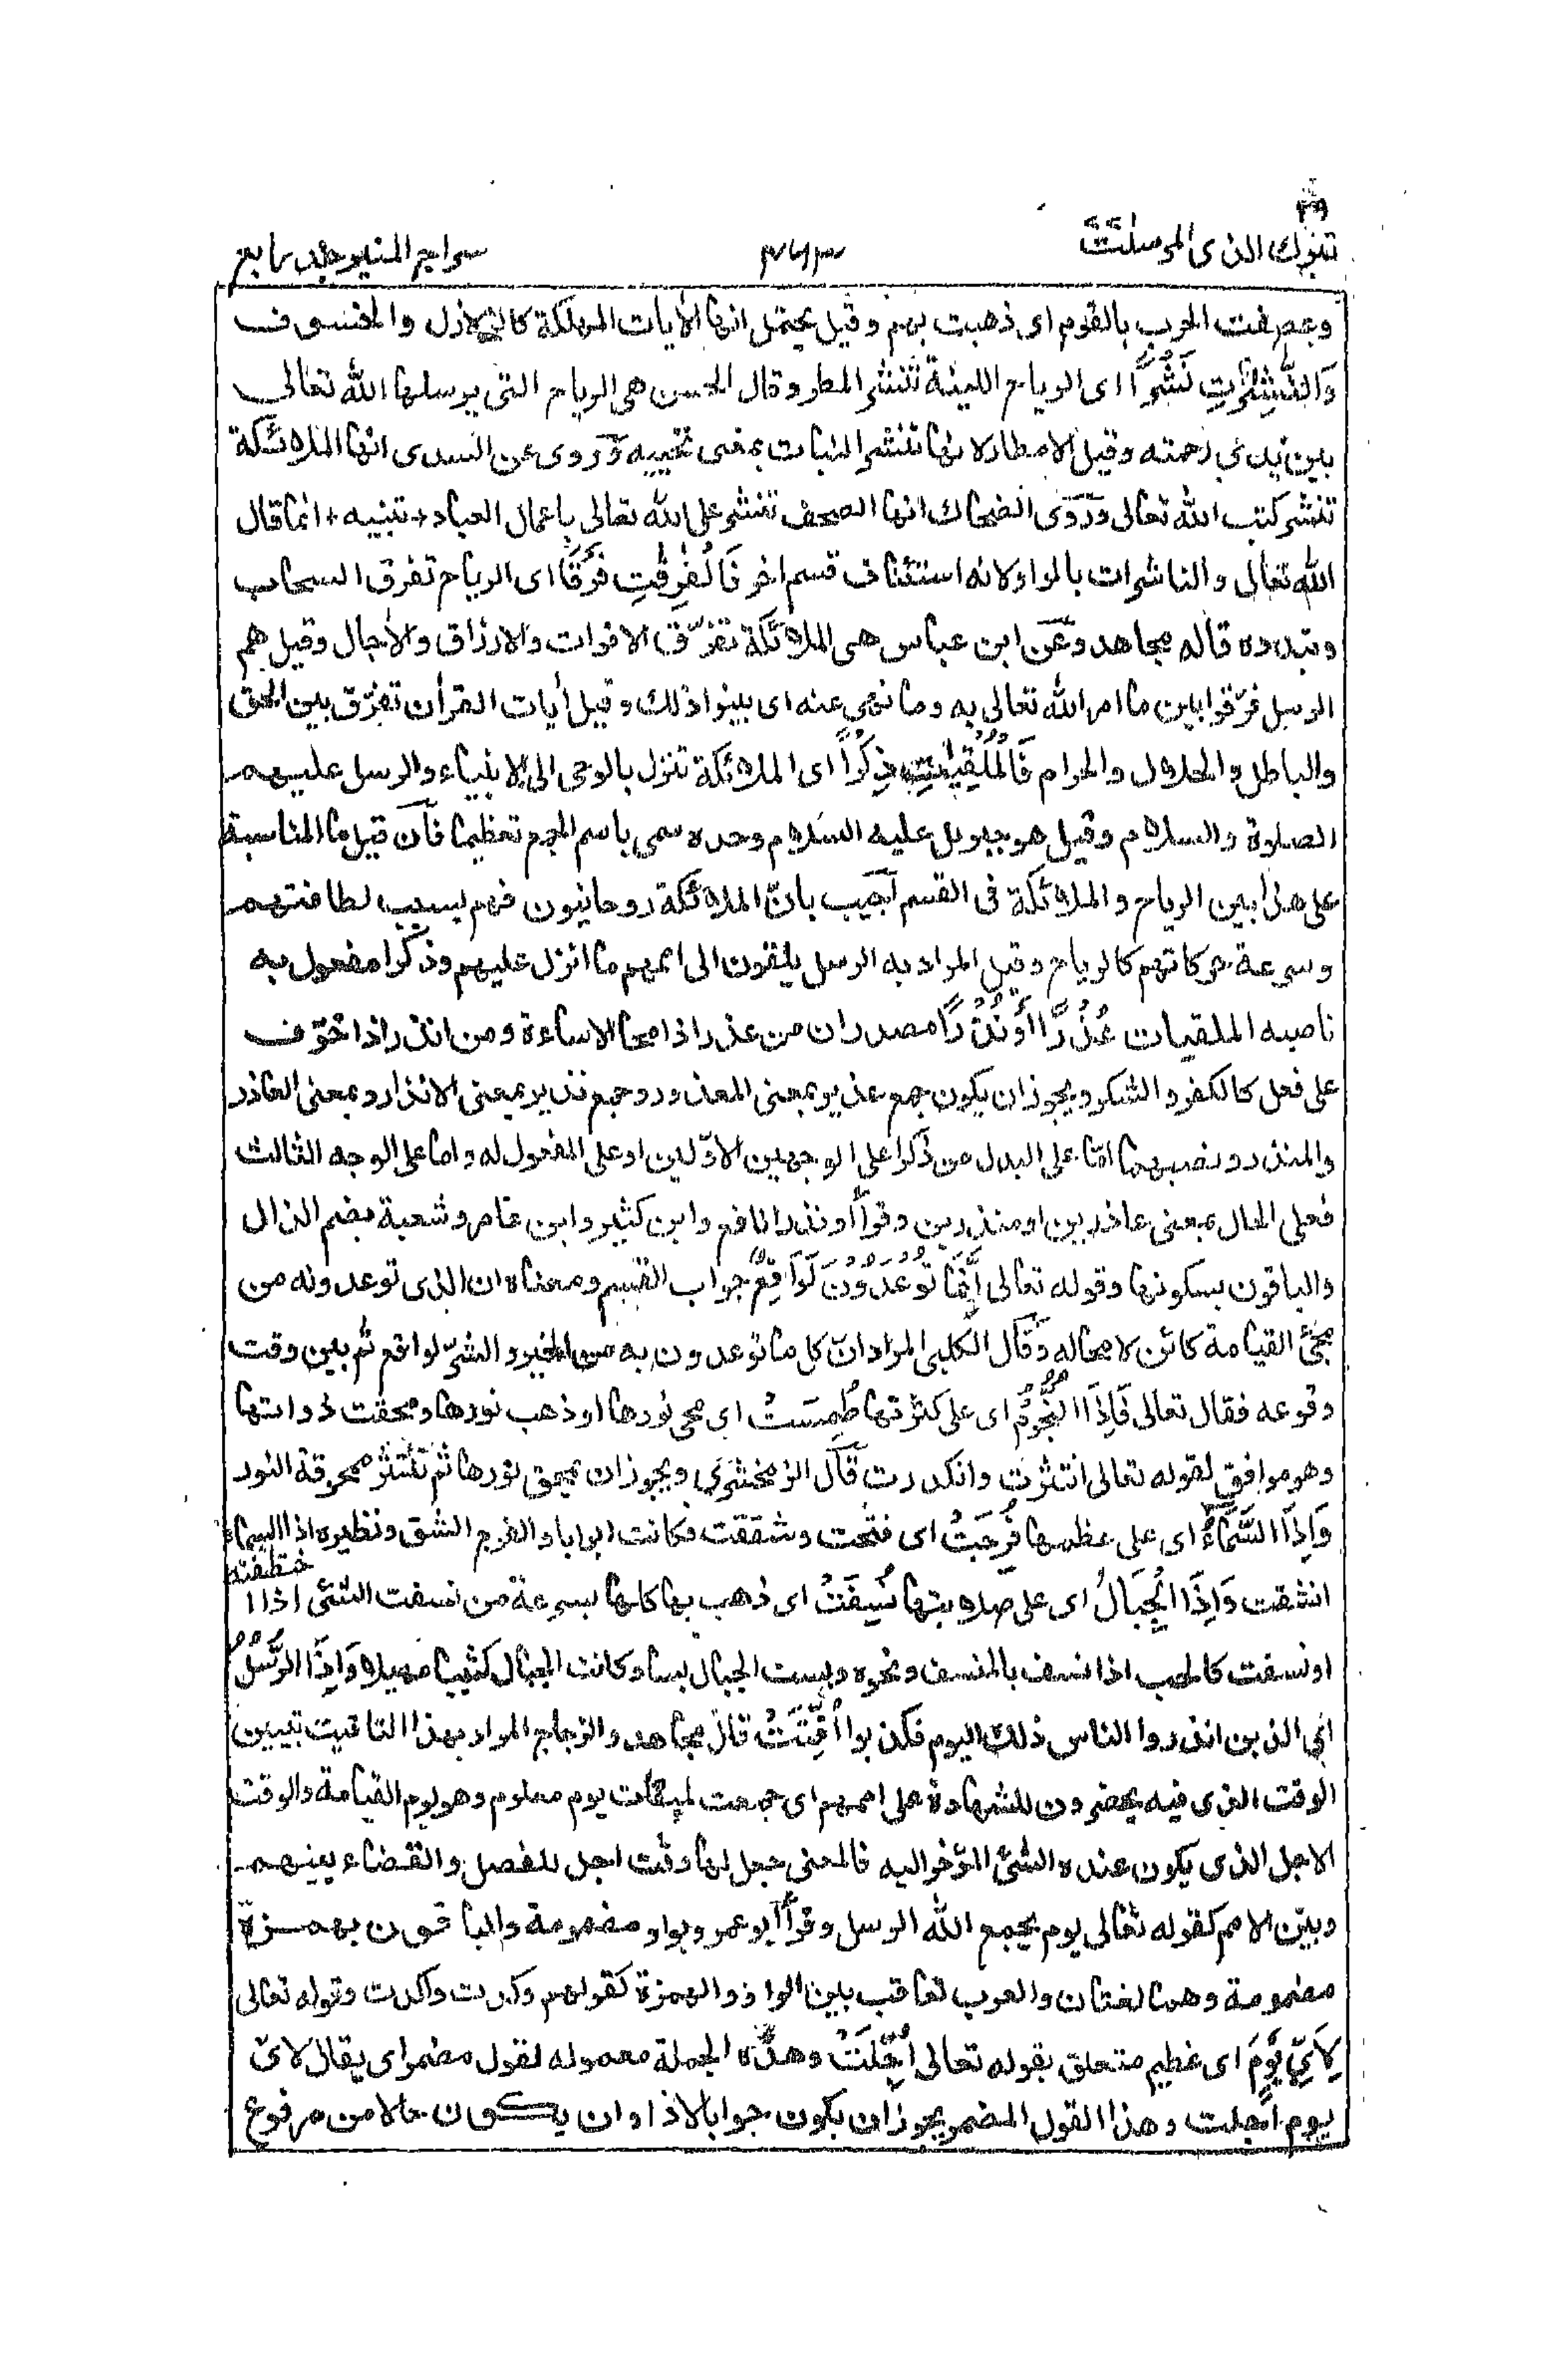 ٢٩
تبٰرك الذى المرسلٰت
٤٦٣
سراج المنير جلد رابع
وعصفت الحرب بالقوم اى ذهبت بهم وقيل يحتمل انها الأيات المهلكة كالزلازل والخسوف
وَالنّٰشِرٰتِ نَشْرًا اى الرياح اللينة تنشر المطر وقال الحسن هى الرياح التى يرسلها الله تعالى
بين يدى رحمته وقيل الامطار لانها تنشر النبات بمعنى تحييه وَروى عن السدى انها الملائكة
تنشر كتب الله تعالى وَرَوَى الضحاك انها الصحف تنشر على الله تعالى باعمال العباد + تنبيه + انما قال
الله تعالى والناشرات بالواو لانه استئناف قسم اخر فَالْفٰرِقٰتِ فَرْقًا اى الرياح تفرق السحاب
وتبدده قاله مجاهد وَعَن ابن عباس هى الملائكة تفرّق الاقوات والارزاق والأجال وقيل هم
الرسل فرّقوا بين ما امر الله تعالى به وما نهى عنه اى بينوا ذلك وقيل أيات القرأن تفرّق بين الحق
والباطل والحلال والحرام فَالْمُلْقِيٰتِ ذِكْرًا اى الملائكة تنزل بالوحى الى الانبياء والرسل عليهم
الصلوة والسلام وقيل هو جبريل عليه السلام وحده سمى باسم الجمع تعظيما فَان قيل ما المناسبة
على هذا بين الرياح والملائكة فى القسم اُجيب بانّ الملائكة روحانيون فهم بسبب لطافتهم
وسرعة حركاتهم كالرياح وقيل المراد به الرسل يلقون الى اممهم ما انزل عليهم وذكرا مفعول به
ناصبه الملقيات عُذْرًا اَوْ نُذْرًا مصدران من عذر اذا محا الاساءة ومن انذر اذا خوّف
على فعل كالكفر والشكر ويجوز ان يكون جمع عذير بمعنى المعذرة وجمع نذير بمعنى الانذار وبمعنى العاذر
والمنذر ونصبهما امّا على البدل من ذكرا على الوجهين الاوّلين او على المفعول له واما على الوجه الثالث
فعلى الحال بمعنى عاذرين او منذرين وقرأ او نذرا نافع وابن كثير وابن عامر وشعبة بضم الذال
والباقون بسكونها وقوله تعالى اِنَّمَا تُوْعَدُوْنَ لَوَاقِعٌ جواب القسم ومعناه ان الذى توعدونه من
مجئ القيامة كائن لا محاله وَقَال الكلبى المراد انّ كل ما توعدون به من الخير والشرّ لواقع ثم بين وقت
وقوعه فقال تعالى فَاِذَا النُّجُوْمُ اى على كثرتها طُمِسَتْ اى محى نورها او ذهب نورها ومحقت ذواتها
وهو موافق لقوله تعالى انتثرت وانكدرت قَال الزمخشرى ويجوز ان يمحق نورها ثم تنتثر ممحوقة النور
وَاِذَا السَّمَآءُ اى على عظمها فُرِجَتْ اى فتحت وشققت فكانت ابوابا والفرج الشق ونظيره اذا السماء
انشقت وَاِذَا الْجِبَالُ اى على صلابتها نُسِفَتْ اى ذهب بها كلها بسرعة من انسفت الشئ اذا اختطفته
او نسفت كالحب اذا نسف بالمنسف ونحوه وبست الجبال بسا وكانت الجبال كثيبا مهيلا وَاِذَا الرُّسُلُ
اى الذين انذروا الناس ذلك اليوم فكذبوا اُقِّتَتْ قال مجاهد والزجاج المراد بهذا التاقيت تبيين
الوقت الذى فيه يحضرون للشهادة على اممهم اى جمعت لميقات يوم معلوم وهو يوم القيامة والوقت
الاجل الذى يكون عنده الشئ المؤخر اليه فالمعنى جعل لها وقت اجل للفصل والقضاء بينهم
وبين الامم كقوله تعالى يوم يجمع الله الرسل وقرأ ابو عمرو بواو مضمومة والباقون بهمزة
مضمومة وهما لغتان والعرب تعاقب بين الواو والهمزة كقولهم وكدت واكدت وقوله تعالى
لِاَىِّ يَوْمٍ اى عظيم متعلق بقوله تعالى اُجِّلَتْ وهذه الجملة معموله لقول مضمر اى يقال لاىّ
يوم اجلت وهذا القول المضمر يجوز ان يكون جوابا لاذا وان يكون حالا من مرفوع